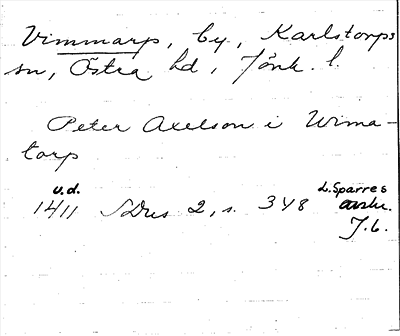 Vimmarp, by, Karlstorps
sn, Östra hd, Jönk. l.
Peter Axelson i Wima-
torp
u.d. L. Sparres
1411 SDns 2, s. 348 avskr.
J.b.